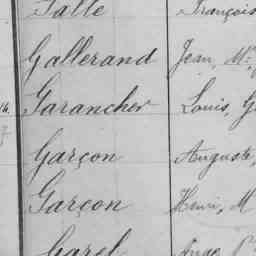 Falle François
Gallerand Jean, M
Garancher Louis, G
Garçon Auguste,
Garçon Henri, M
Garel Ange